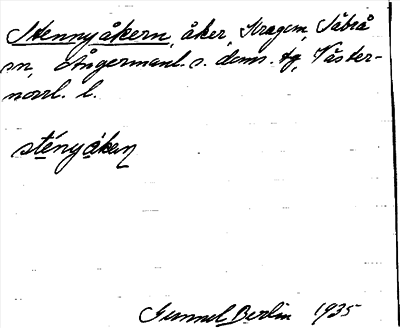 Stennyåkern, åker, Kragom, Säbrå
sn, Ångermanl. s. doms. tg, Väster-
norrl. l.
sténẏåkeṇ
Gunnel Berlin 1935